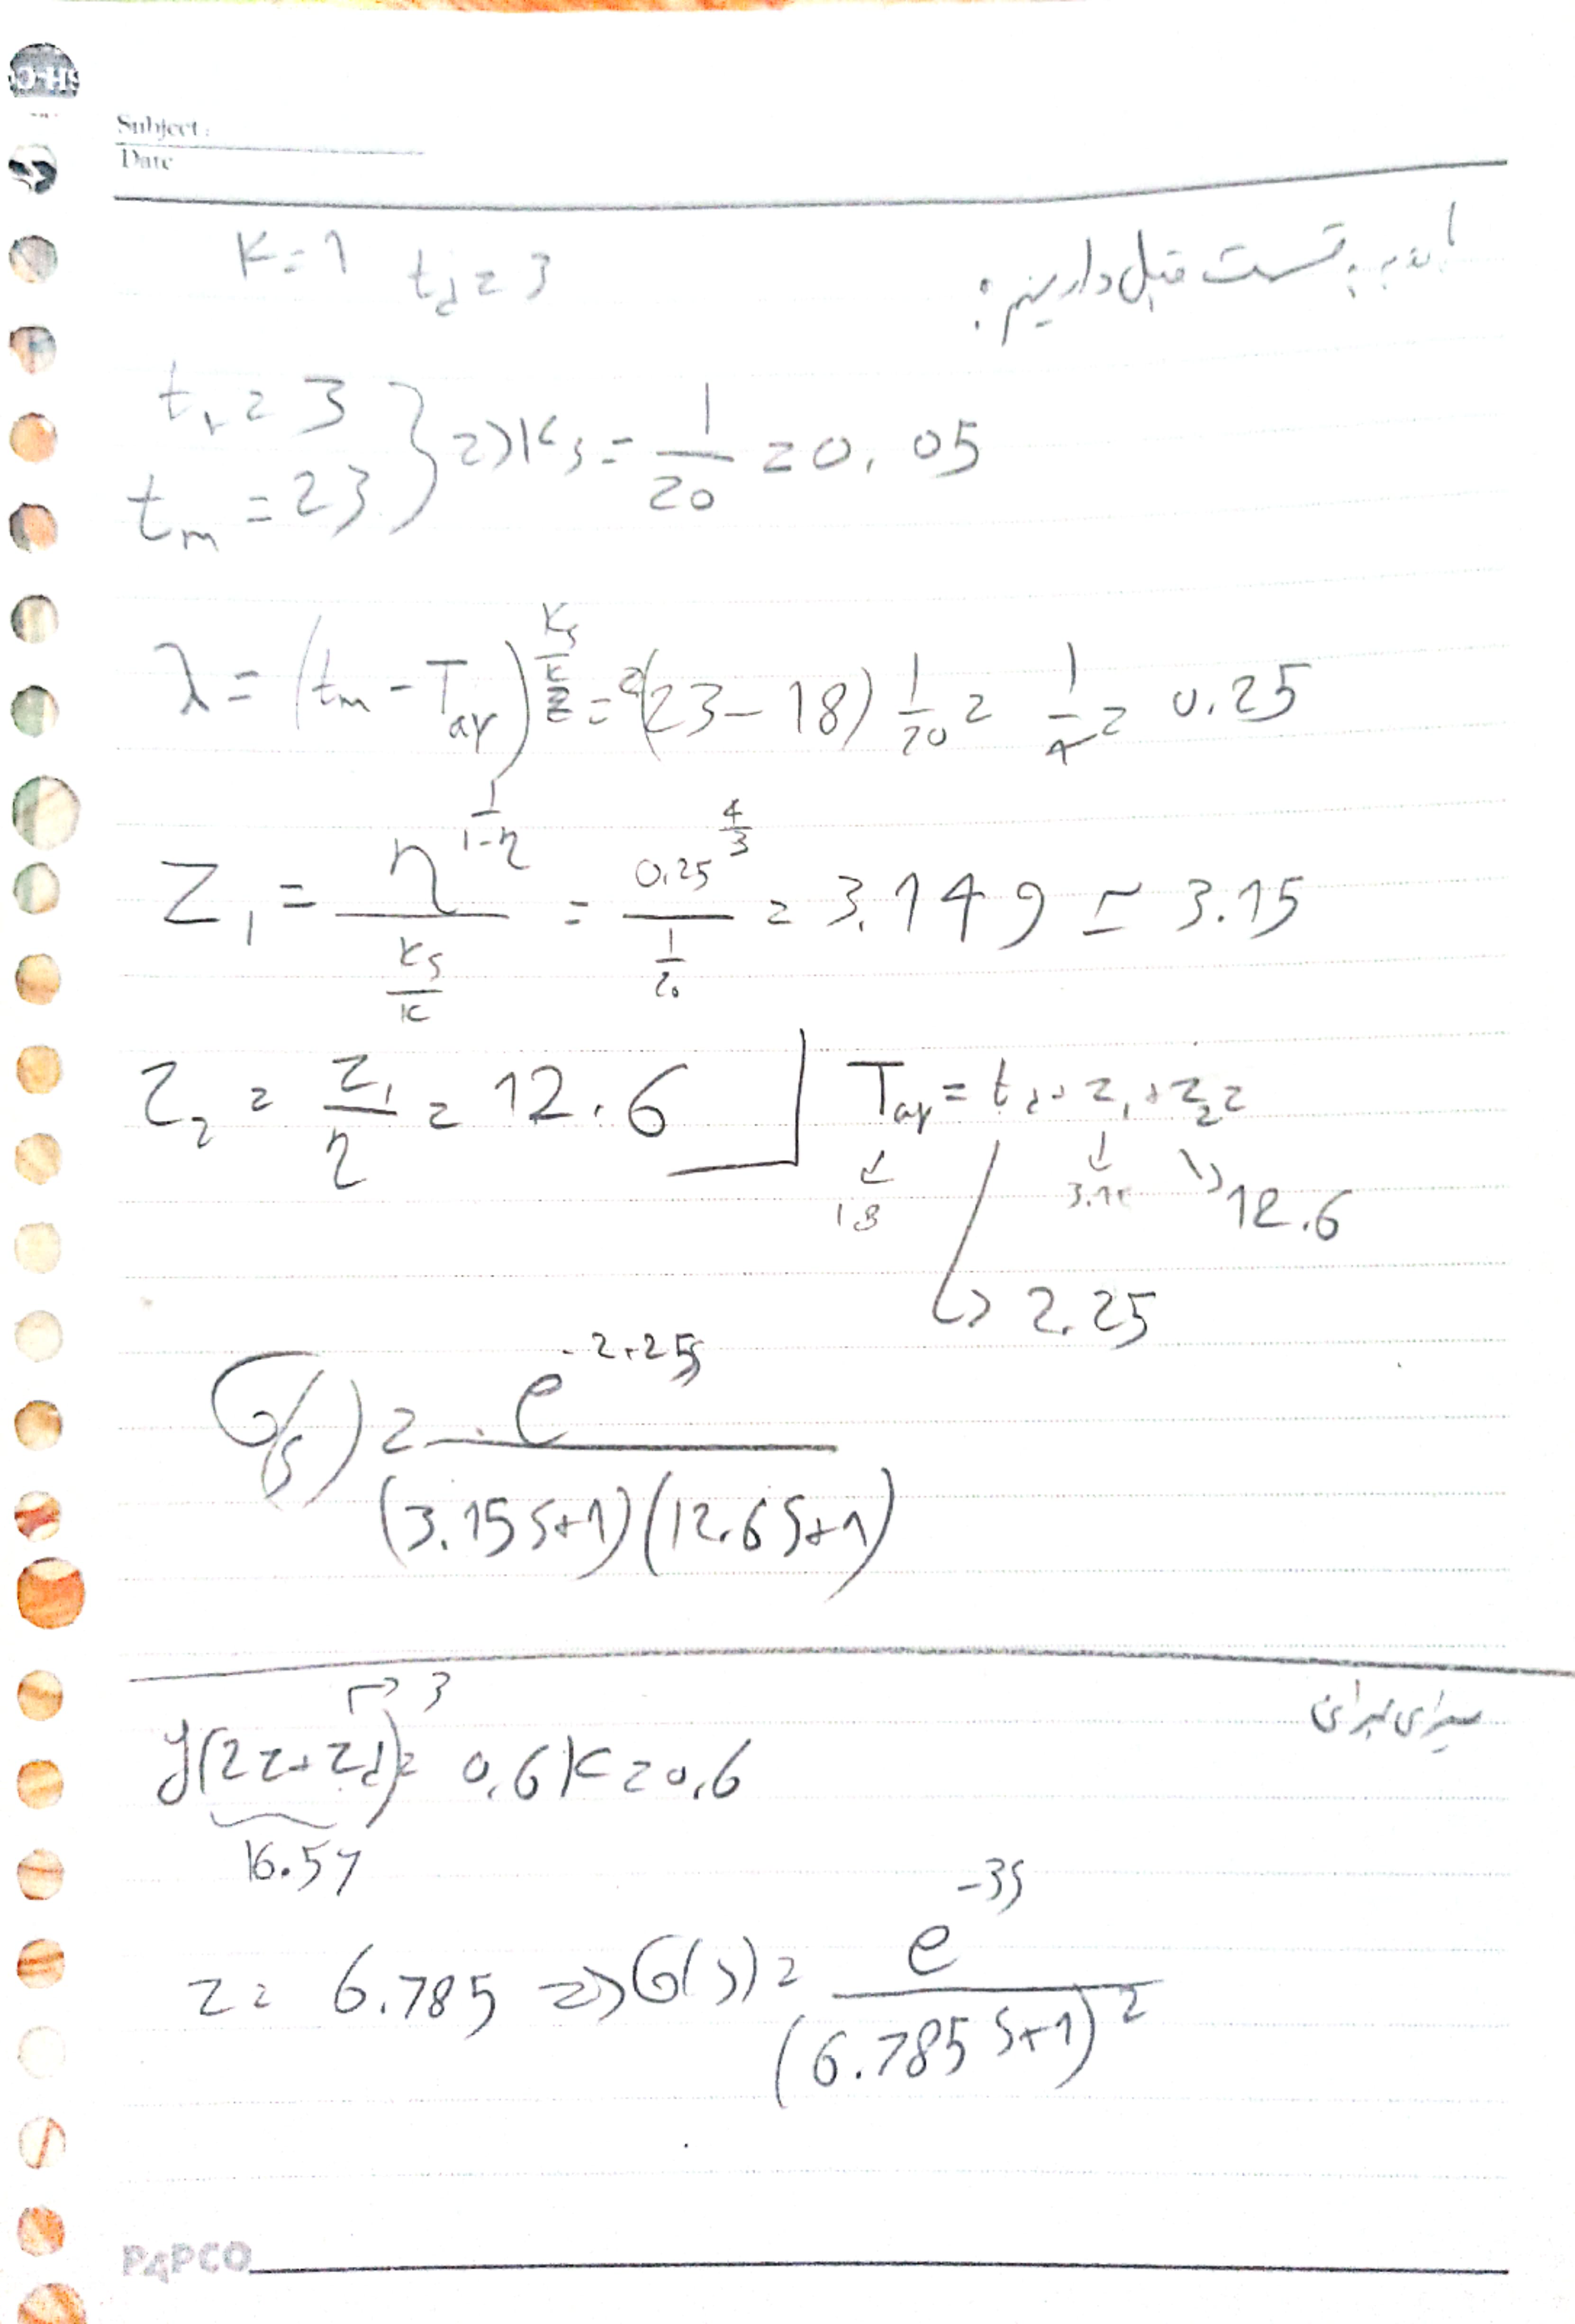 Subject:
Date
K=1 td=3
از قسمت قبل داریم:
tr=3
tm=23 } => Ks = 1/20 = 0.05
λ = (tm - Tar) Ks/K = (23-18) 1/20 = 1/4 = 0.25
τ1 = η^(1/(1-η)) / (Ks/K) = 0.25^(4/3) / (1/20) = 3.149 ≃ 3.15
τ2 = τ1/η = 12.6
Tar = td + τ1 + τ2 =
18 3.15 12.6
2.25
G(s) = e^(-2.25s) / (3.15s+1)(12.6s+1)
→ 3
y(2τ+τd) = 0.6K = 0.6
16.57
τ = 6.785 => G(s) = e^(-3s) / (6.785s+1)^2
PAPCO